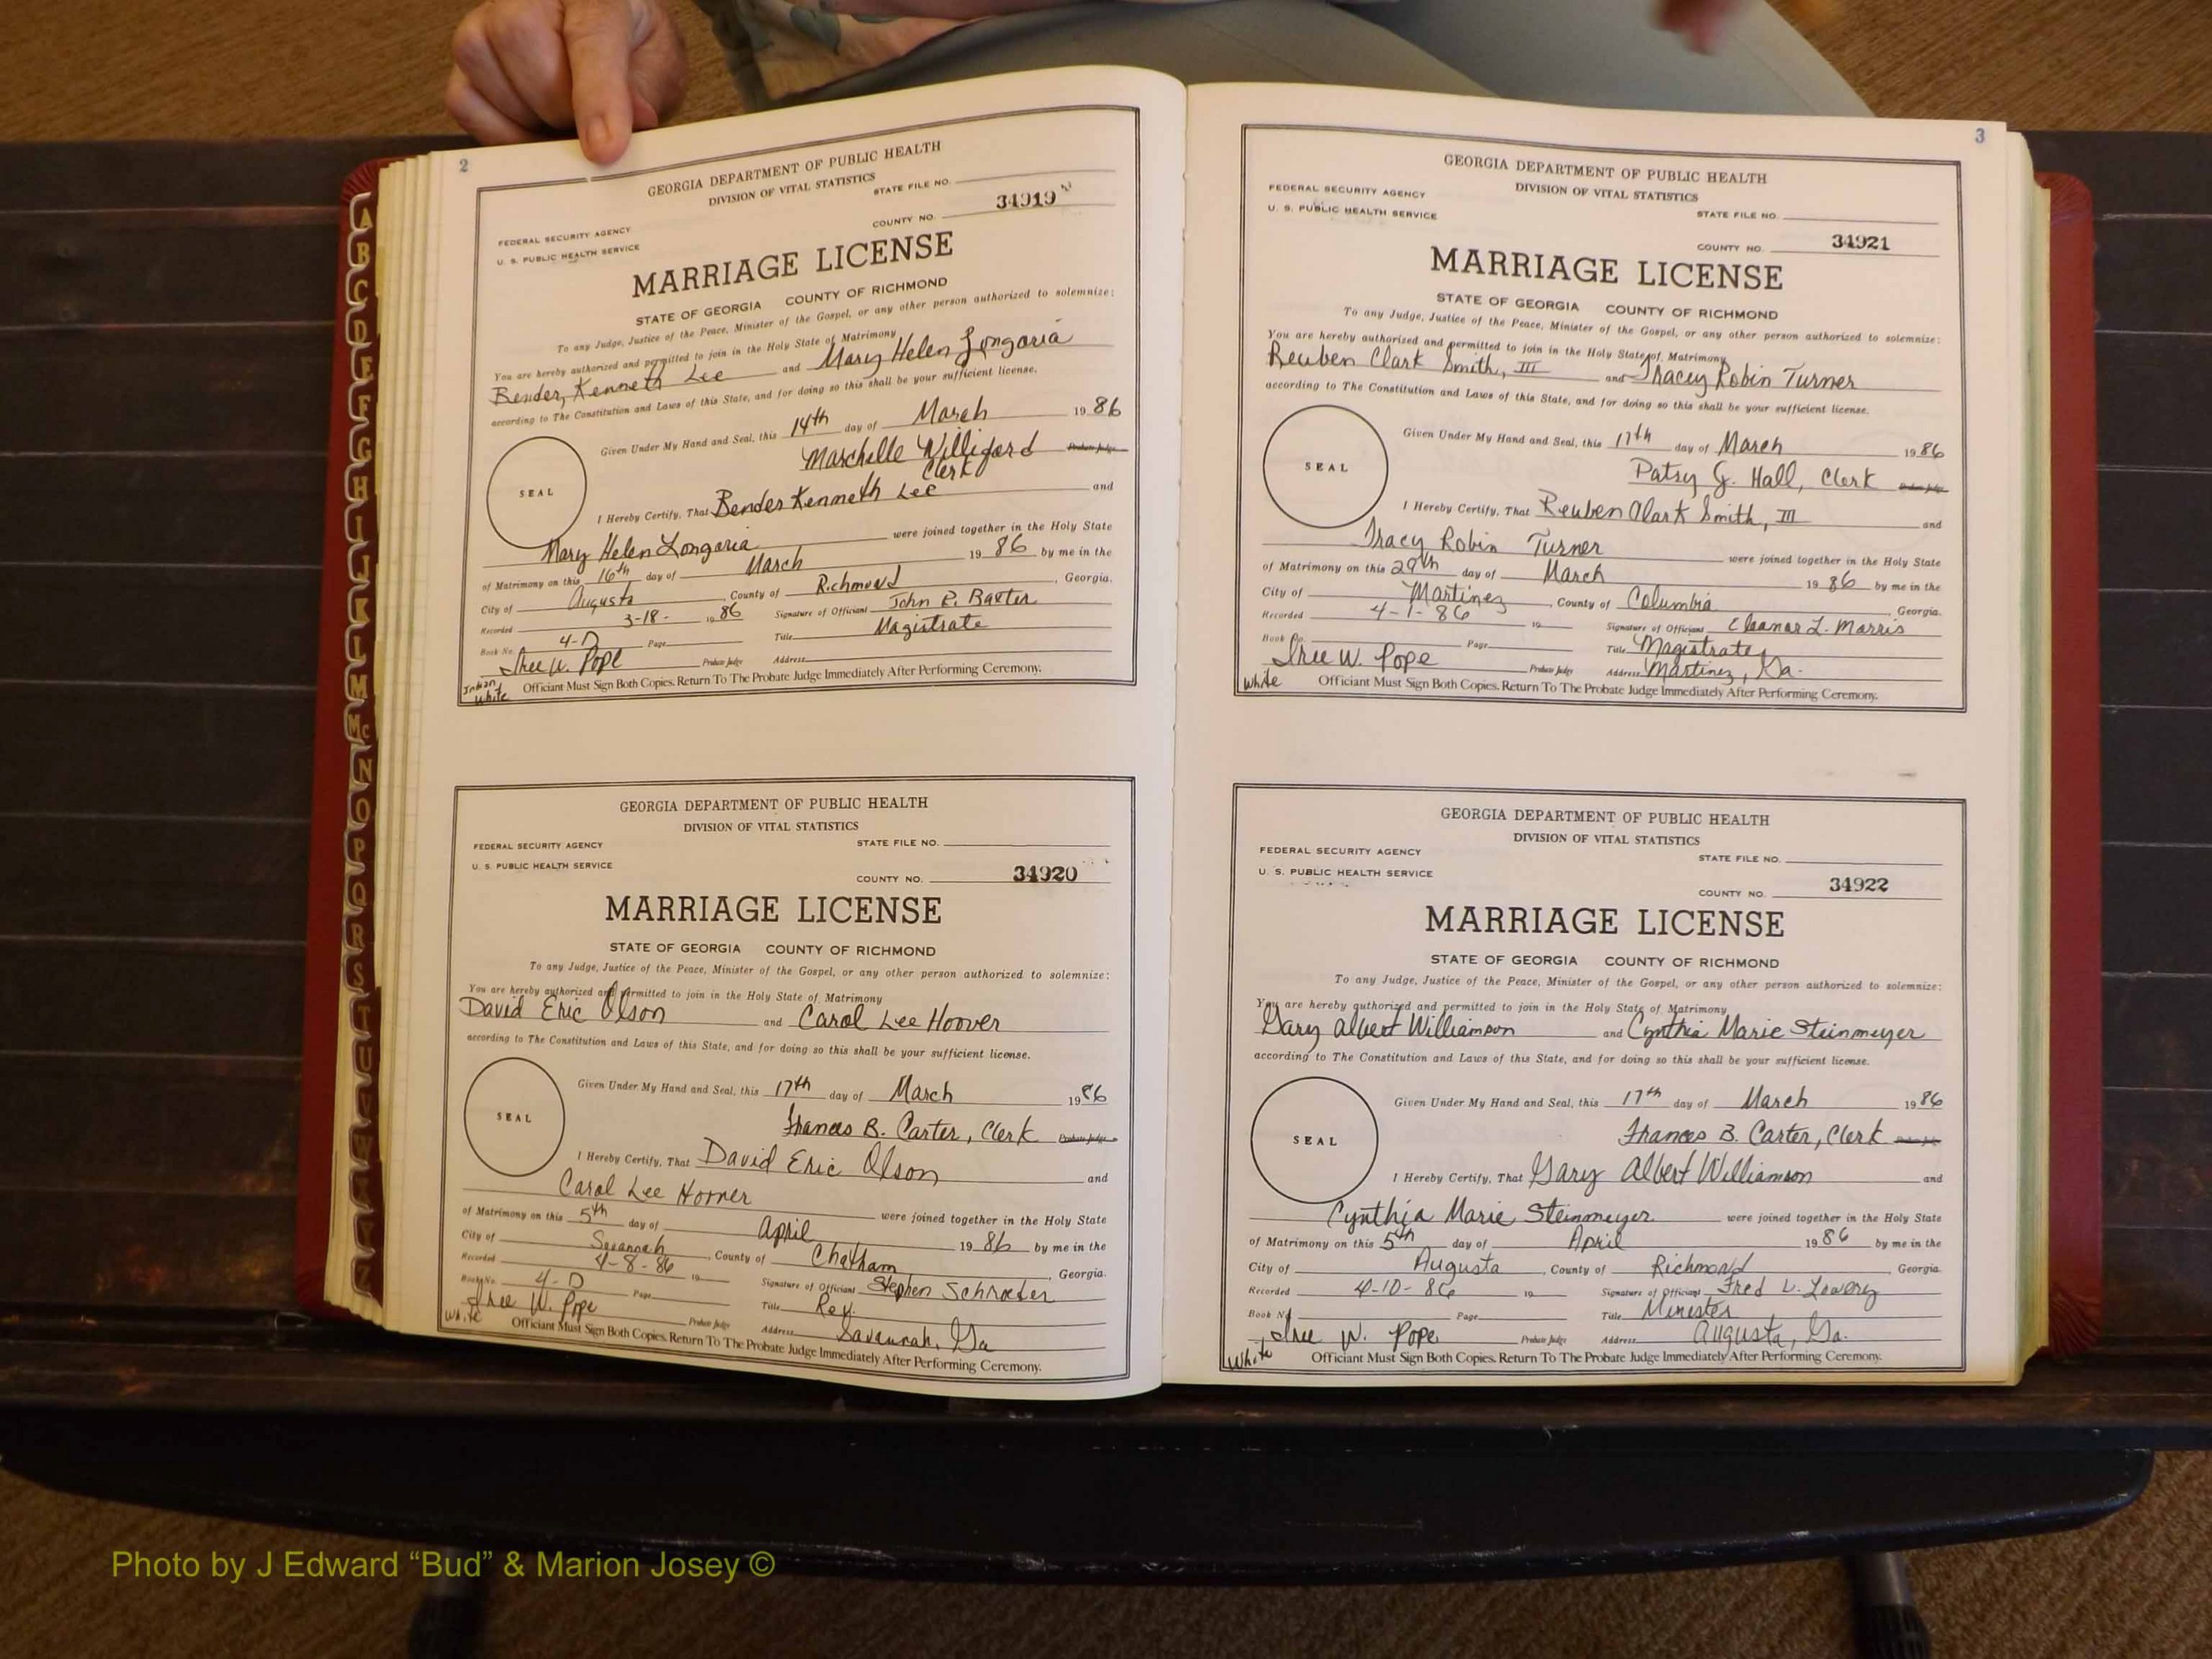 2
GEORGIA DEPARTMENT OF PUBLIC HEALTH
DIVISION OF VITAL STATISTICS
STATE FILE NO.
FEDERAL SECURITY AGENCY
U. S. PUBLIC HEALTH SERVICE
COUNTY NO. 34919
MARRIAGE LICENSE
STATE OF GEORGIA COUNTY OF RICHMOND
To any Judge, Justice of the Peace, Minister of the Gospel, or any other person authorized to solemnize:
You are hereby authorized and permitted to join in the Holy State of Matrimony
Bender, Kenneth Lee and Mary Helen Longoria
according to The Constitution and Laws of this State, and for doing so this shall be your sufficient license.
Given Under My Hand and Seal, this 14th day of March 1986
Marchelle Williford Probate Judge
Clerk
SEAL
I Hereby Certify, That Bender Kenneth Lee and
Mary Helen Longoria were joined together in the Holy State
of Matrimony on this 16th day of March 1986 by me in the
City of Augusta, County of Richmond, Georgia.
Recorded 3-18- 1986 Signature of Officiant John E. Baxter
Book No. 4-D Page Title Magistrate
Iree W. Pope Probate Judge Address
Indian
White
Officiant Must Sign Both Copies. Return To The Probate Judge Immediately After Performing Ceremony.
GEORGIA DEPARTMENT OF PUBLIC HEALTH
DIVISION OF VITAL STATISTICS
FEDERAL SECURITY AGENCY STATE FILE NO.
U. S. PUBLIC HEALTH SERVICE
COUNTY NO. 34920
MARRIAGE LICENSE
STATE OF GEORGIA COUNTY OF RICHMOND
To any Judge, Justice of the Peace, Minister of the Gospel, or any other person authorized to solemnize:
You are hereby authorized and permitted to join in the Holy State of Matrimony
David Eric Olson and Carol Lee Hoover
according to The Constitution and Laws of this State, and for doing so this shall be your sufficient license.
Given Under My Hand and Seal, this 17th day of March 1986
Frances B. Carter, Clerk Probate Judge
SEAL
I Hereby Certify, That David Eric Olson and
Carol Lee Hoover were joined together in the Holy State
of Matrimony on this 5th day of April 1986 by me in the
City of Savannah, County of Chatham, Georgia.
Recorded 4-8-86 19 Signature of Officiant Stephen Schroeder
Book No. 4-D Page Title Rev.
Iree W. Pope Probate Judge Address Savannah, Ga
White
Officiant Must Sign Both Copies. Return To The Probate Judge Immediately After Performing Ceremony.
3
GEORGIA DEPARTMENT OF PUBLIC HEALTH
DIVISION OF VITAL STATISTICS
FEDERAL SECURITY AGENCY
U. S. PUBLIC HEALTH SERVICE
STATE FILE NO.
COUNTY NO. 34921
MARRIAGE LICENSE
STATE OF GEORGIA COUNTY OF RICHMOND
To any Judge, Justice of the Peace, Minister of the Gospel, or any other person authorized to solemnize:
You are hereby authorized and permitted to join in the Holy State of Matrimony
Reuben Clark Smith, III and Tracey Robin Turner
according to The Constitution and Laws of this State, and for doing so this shall be your sufficient license.
Given Under My Hand and Seal, this 17th day of March 1986
Patsy G. Hall, Clerk Probate Judge
SEAL
I Hereby Certify, That Reuben Clark Smith, III and
Tracy Robin Turner were joined together in the Holy State
of Matrimony on this 29th day of March 1986 by me in the
City of Martinez, County of Columbia, Georgia.
Recorded 4-1-86 19 Signature of Officiant Eleanor L. Morris
Book No. Page Title Magistrate
Iree W. Pope Probate Judge Address Martinez, Ga.
White
Officiant Must Sign Both Copies. Return To The Probate Judge Immediately After Performing Ceremony.
GEORGIA DEPARTMENT OF PUBLIC HEALTH
DIVISION OF VITAL STATISTICS
FEDERAL SECURITY AGENCY
STATE FILE NO.
U. S. PUBLIC HEALTH SERVICE
COUNTY NO. 34922
MARRIAGE LICENSE
STATE OF GEORGIA COUNTY OF RICHMOND
To any Judge, Justice of the Peace, Minister of the Gospel, or any other person authorized to solemnize:
You are hereby authorized and permitted to join in the Holy State of Matrimony
Gary Albert Williamson and Cynthia Marie Steinmeyer
according to The Constitution and Laws of this State, and for doing so this shall be your sufficient license.
Given Under My Hand and Seal, this 17th day of March 1986
Frances B. Carter, Clerk
SEAL
I Hereby Certify, That Gary Albert Williamson and
Cynthia Marie Steinmeyer were joined together in the Holy State
of Matrimony on this 5th day of April 1986 by me in the
City of Augusta, County of Richmond, Georgia.
Recorded 4-10-86 19 Signature of Officiant Fred L. Lowery
Book No. Page Title Minister
Iree W. Pope Probate Judge Address Augusta, Ga.
White
Officiant Must Sign Both Copies. Return To The Probate Judge Immediately After Performing Ceremony.
A
B
C
D
E
F
G
H
I
J
K
L
M
Mc
N
O
P
Q
R
S
T
U
V
W
Photo by J Edward “Bud” & Marion Josey ©